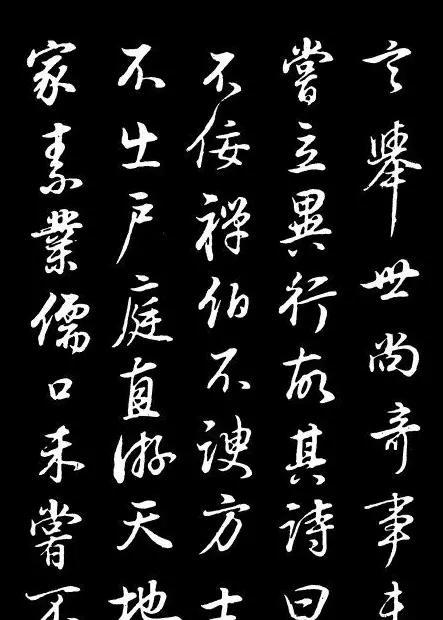 言舉世尚奇事未
嘗立異行故其詩曰
不佞禪伯不諛方士
不出戶庭直游天地
家素業儒口未嘗不